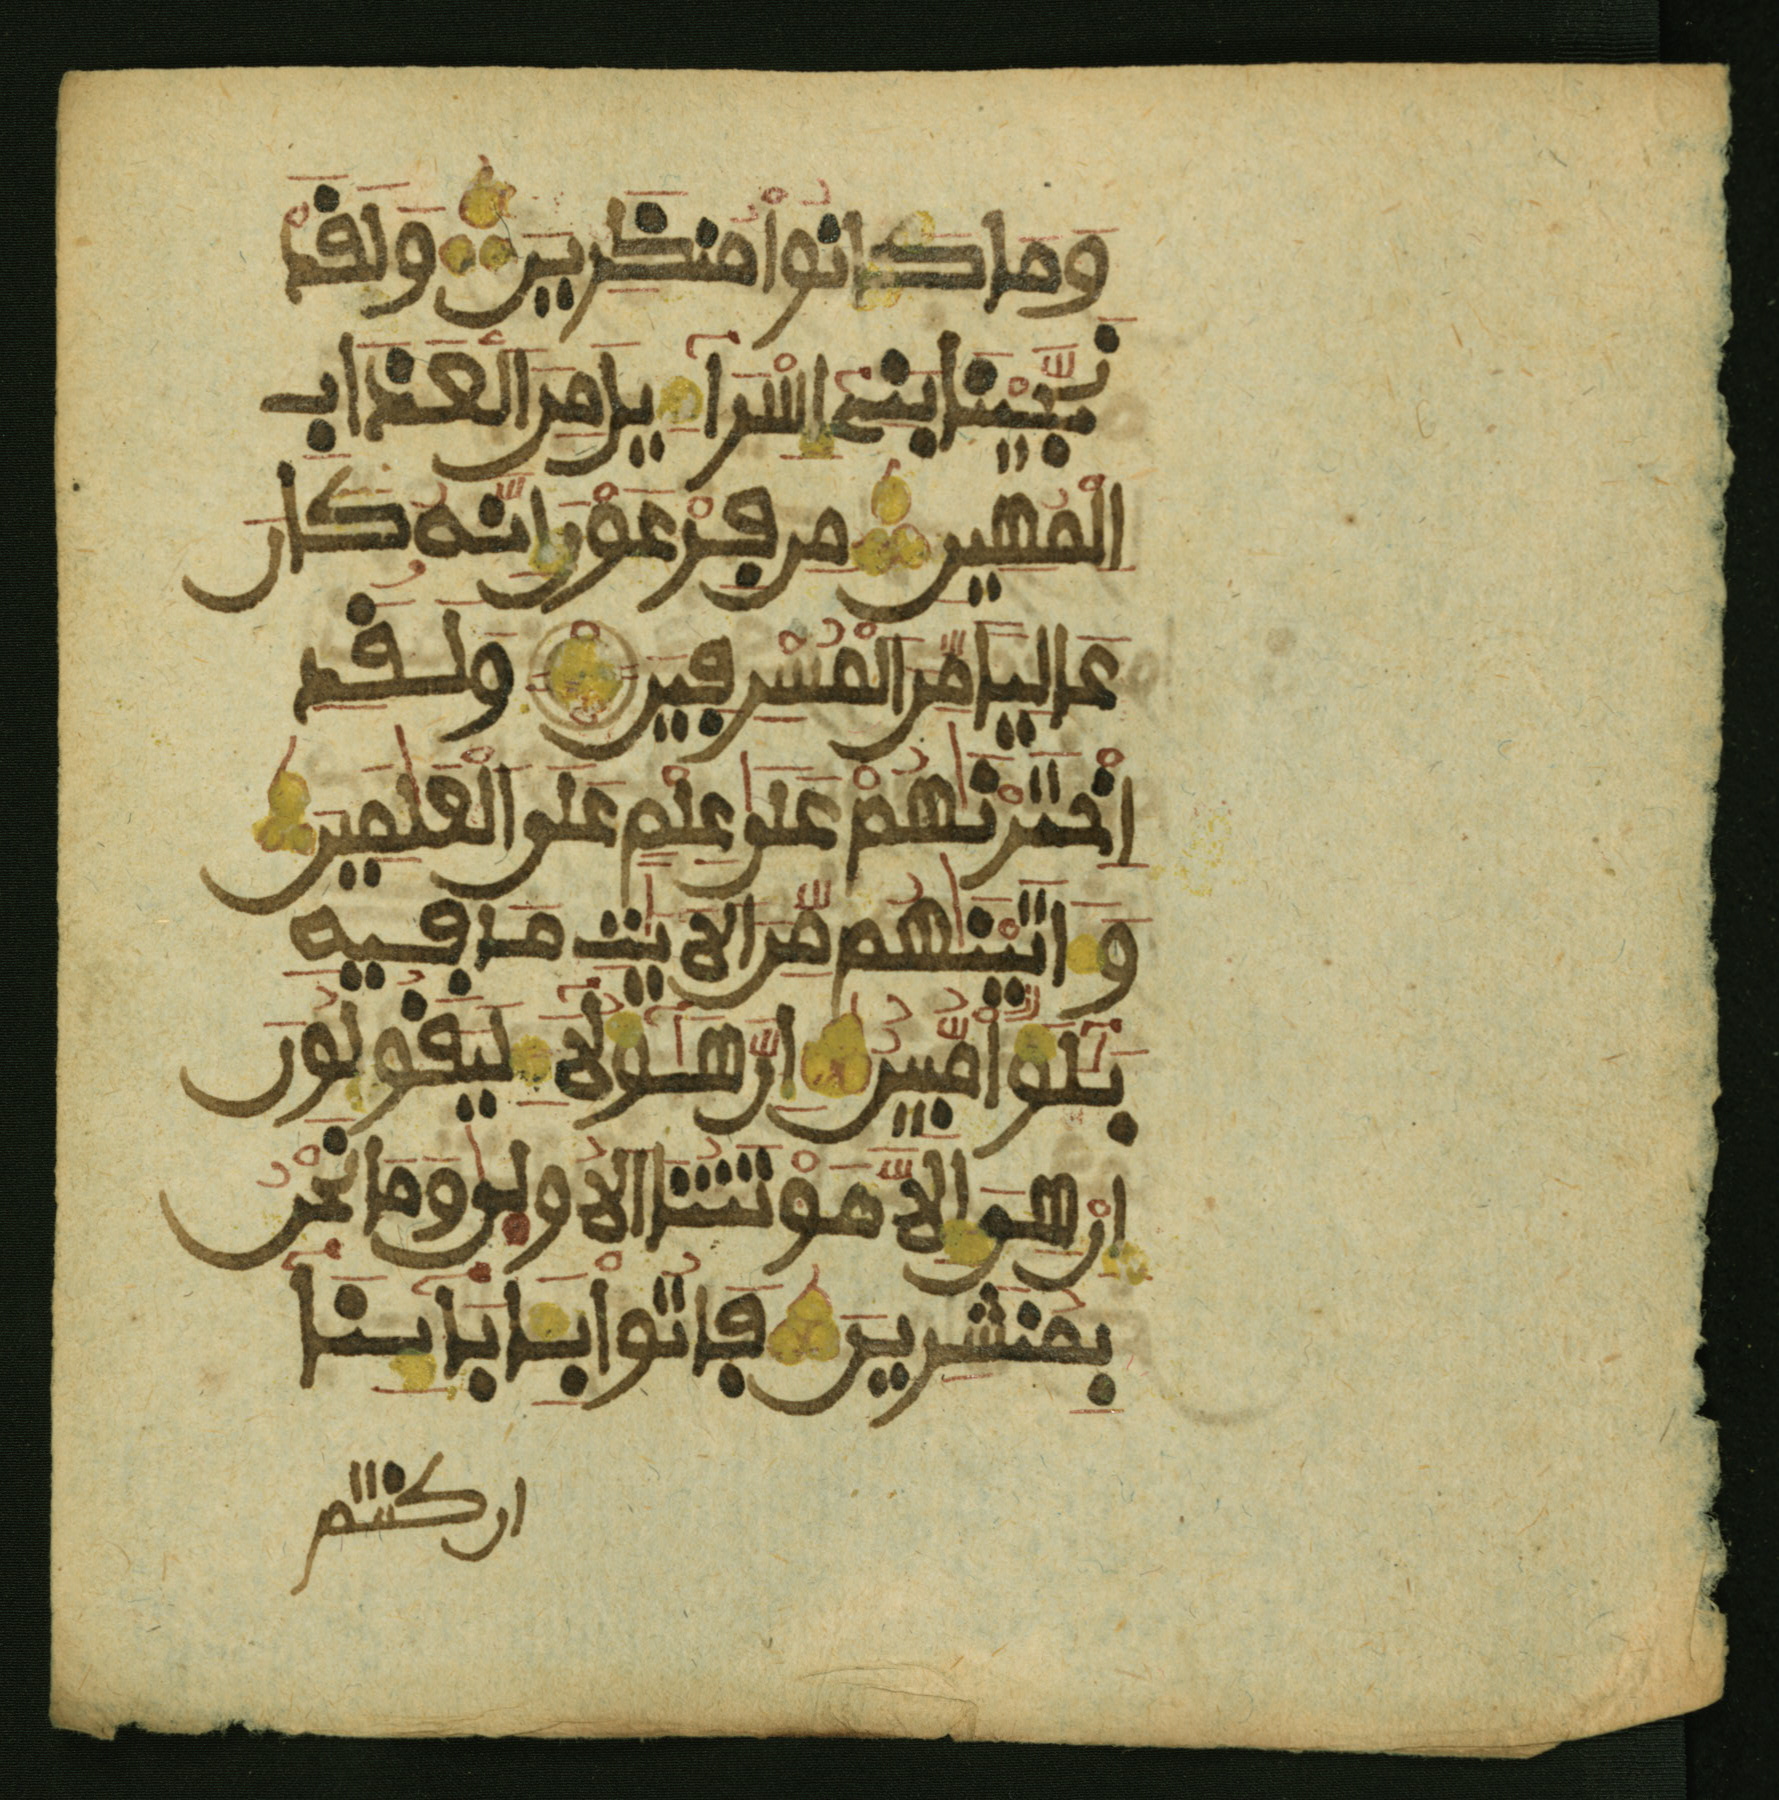 وَمَا كَانُواْ مُنظَرِينَ وَلَقَدْ
نَجَّيْنَا بَنِےٓ إِسْرَآءِيلَ مِنَ ٱلْعَذَابِ
ٱلْمُهِينِ مِن فِرْعَوْنَ إِنَّهُۥ كَانَ
عَالِيًا مِّنَ ٱلْمُسْرِفِينَ وَلَقَدِ
ٱخْتَرْنَٰهُمْ عَلَىٰ عِلْمٍ عَلَى ٱلْعَٰلَمِينَ
وَءَاتَيْنَٰهُم مِّنَ ٱلْأٓيَٰتِ مَا فِيهِ
بَلَٰٓؤٌاْ مُّبِينٌ إِنَّ هَٰٓؤُلَآءِ لَيَقُولُونَ
إِنْ هِىَ إِلَّا مَوْتَتُنَا ٱلْأُولَىٰ وَمَا نَحْنُ
بِمُنشَرِينَ فَأْتُواْ بِـَٔابَآئِنَآ
ان كنتم